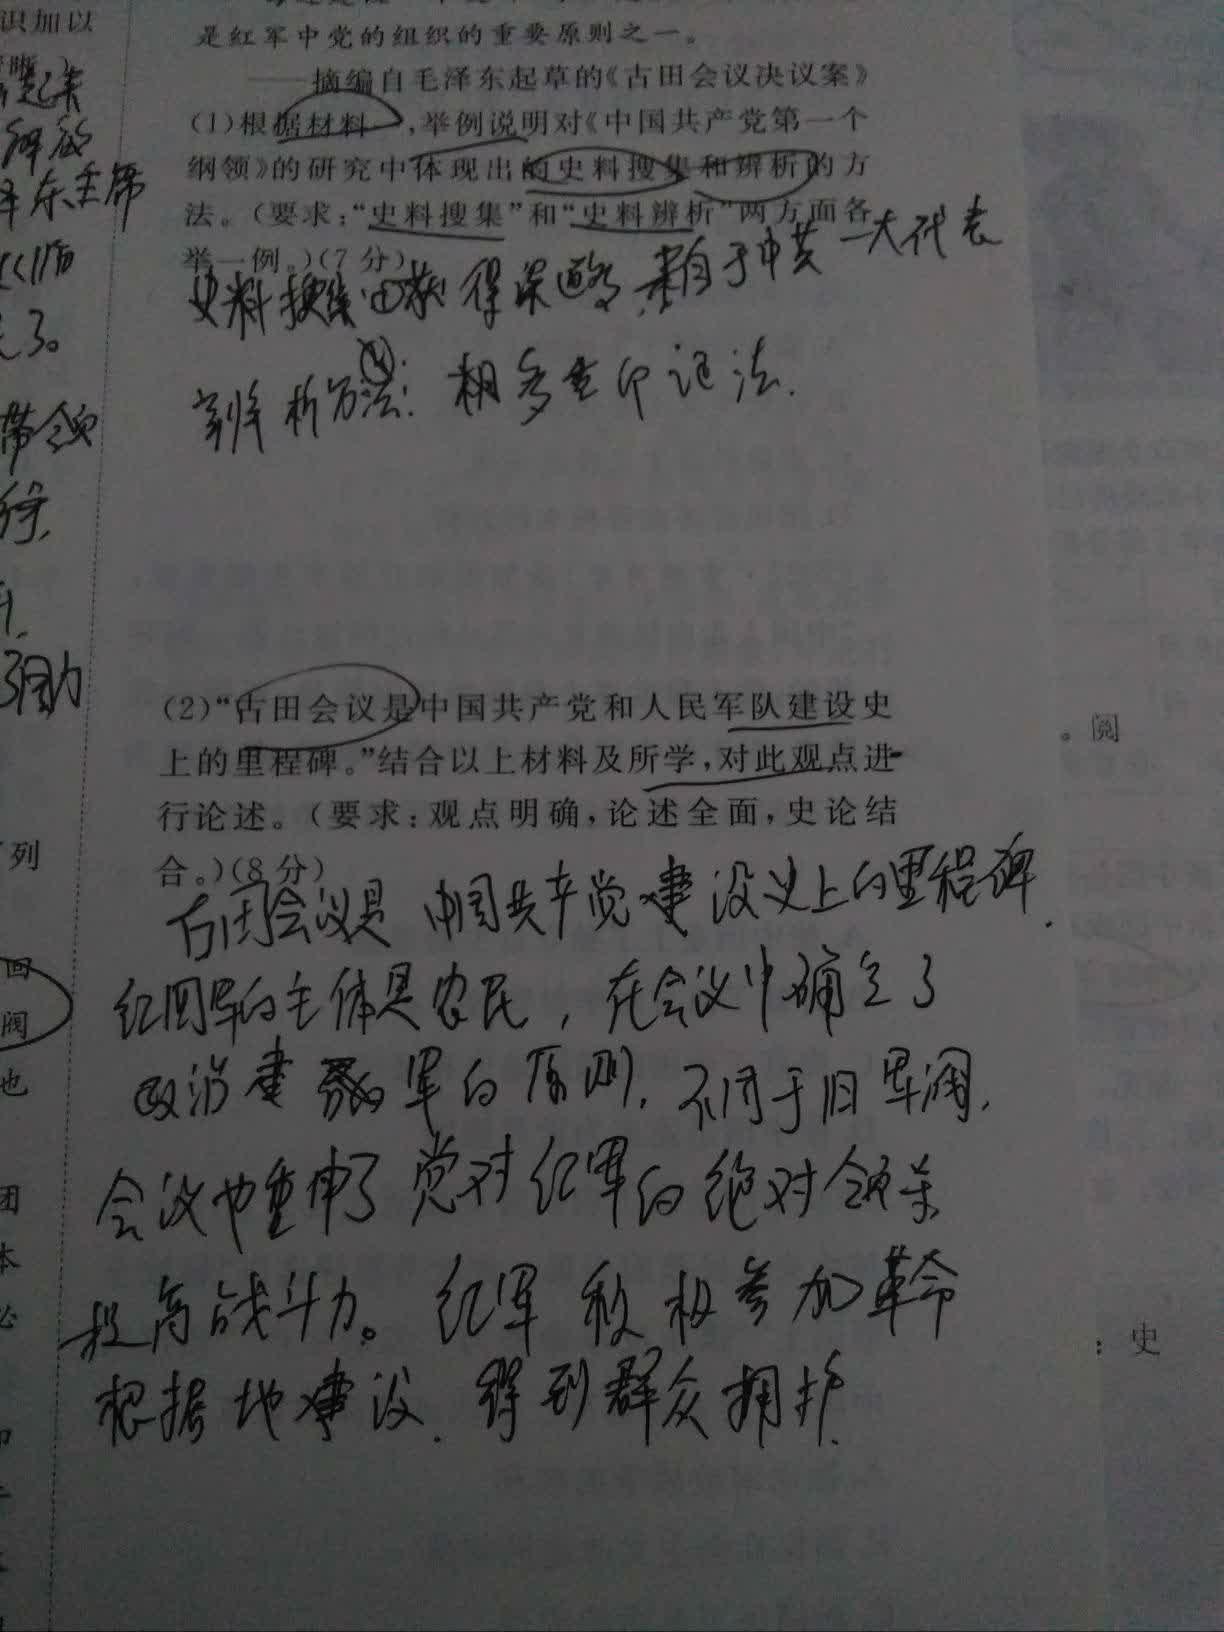 识加以
是红军中党的组织的重要原则之一。
——摘编自毛泽东起草的《古田会议决议案》
(1)根据材料一,举例说明对《中国共产党第一个
纲领》的研究中体现出的史料搜集和辨析的方
法。(要求:“史料搜集”和“史料辨析”两方面各
举一例。)(7分)
史料搜集:获得渠道多,来自于中共一大代表
辨析方法:相多重印证法.
(2)“古田会议是中国共产党和人民军队建设史
上的里程碑。”结合以上材料及所学,对此观点进
行论述。(要求:观点明确,论述全面,史论结
合。)(8分)
古田会议是中国共产党建设史上的里程碑.
红军的主体是农民,在会议中确立了
政治建军的原则,不同于旧军阀,
会议也重申了党对红军的绝对领导
提高战斗力。红军积极参加革命
根据地建设.得到群众拥护.
带领
列
阀
也
团
本
。阅
:史